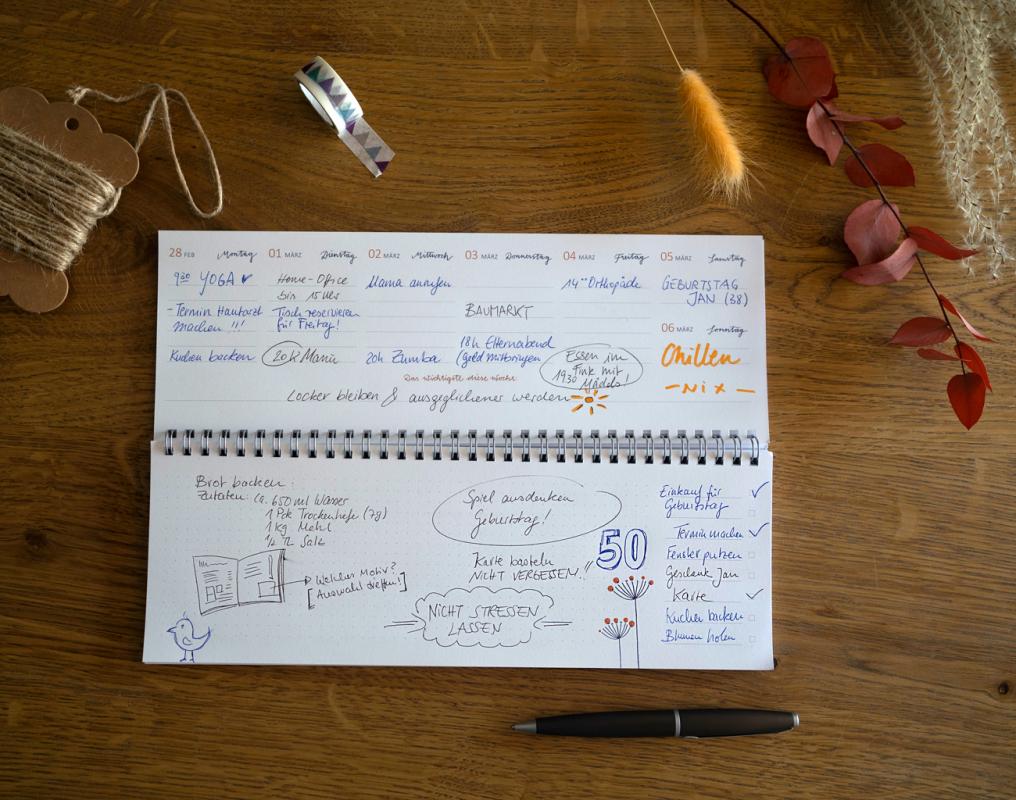 28 FEB Montag
9³⁰ YOGA ✓
- Termin Hautarzt
machen !!!
Kuchen backen
01 MÄRZ Dienstag
Home-Office
bis 15 Uhr
Tisch reservieren
für Freitag!
20h Manu
02 MÄRZ Mittwoch
Mama anrufen
20h Zumba
03 MÄRZ Donnerstag
BAUMARKT
18h Elternabend
(geld mitbringen
04 MÄRZ Freitag
14⁰⁰ Orthopäde
Essen im
Fink mit
1930 Mädels!
05 MÄRZ Samstag
GEBURTSTAG
JAN (38)
06 MÄRZ Sonntag
Chillen
- NIX -
Das wichtigste diese Woche:
Locker bleiben & ausgeglichener werden
Brot backen:
Zutaten: ca. 650 ml Wasser
1 Pck Trockenhefe (7g)
1 kg Mehl
½ TL Salz
Welches Motiv?
[Auswahl treffen!]
Spiel ausdenken
Geburtstag!
Karte basteln
NICHT VERGESSEN!!
NICHT STRESSEN
LASSEN
50
Einkauf für ✓
Geburtstag
Termin machen ✓
Fenster putzen
Geschenk Jan
Karte ✓
Kuchen backen
Blumen holen